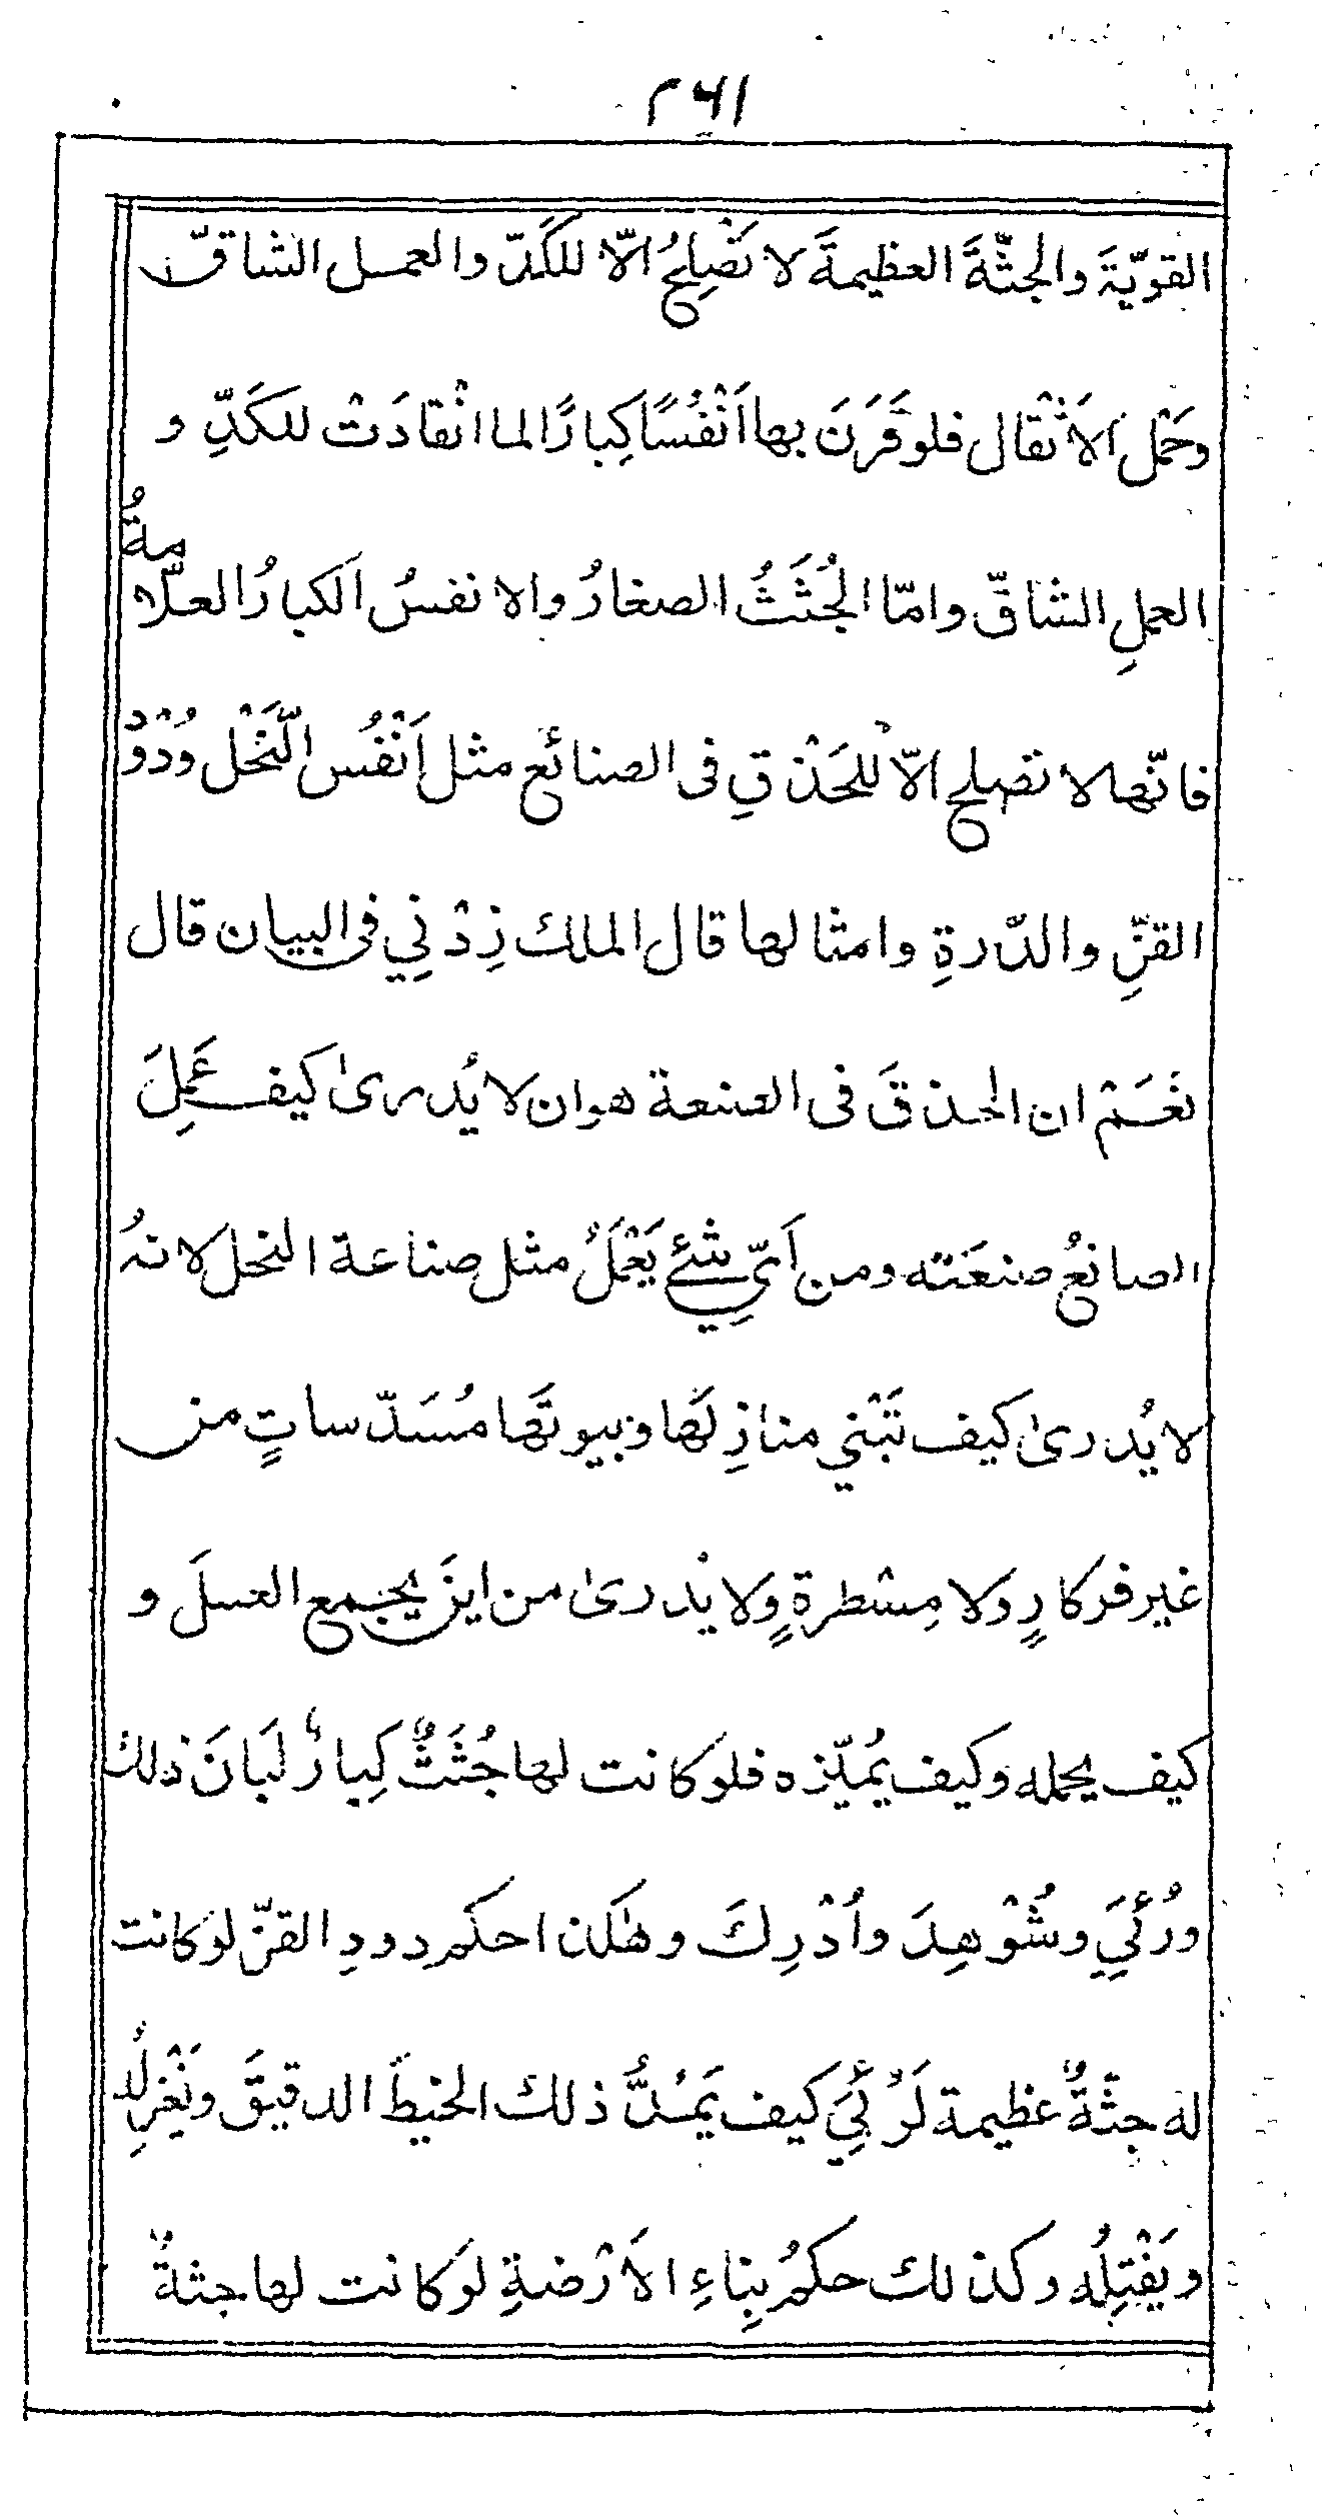 ۲۶۱
القويّةَ والجثّةَ العظيمةَ لا تَصْلِحُ الّا للكَدّ والعمل الشاقّ
وحَمْل الاَثْقال فلو قَرَنَ بها اَنْفُسًا كِبارًا لما انْقادَتْ للكَدِّ و
العملِ الشاقّ وامّا الجُثَثُ الصغارُ والانفسُ الكبارُ العلّامةُ
فانّها لا تصلح الّا للحَذْقِ فى الصنائع مثل اَنْفُس النَّحْل ودُوْدُ
القزِّ والدّرةِ وامثالها قال الملك زِدْنِي فى البيان قال
نَعَمْ ان الحذقَ فى الصنعة هو ان لا يُدرىٰ كيف عَمِلَ
الصانعُ صنعَته ومن اَيِّ شئے يَعْمَلُ مثل صناعة النحل لانهُ
لا يُدرىٰ كيف تَبْني منازِلَها وبيوتَها مُسَدّساتٍ من
غير فركارٍ ولا مِسْطرةٍ ولا يُدرىٰ من اينَ يجمع العسلَ و
كيف يحمله وكيف يُميّزه فلو كانت لها جُثَثٌ كِبارٌ لَبانَ ذلك
ورُئِيَ وشُوْهِدَ واُدْرِكَ وهٰكذا حكم دودِ القزّ لو كانت
له جثّةٌ عظيمة لَرُئِيَ كيف يَمُدُّ ذلك الخيطَ الدقيقَ ويَغْزِلُه
ويَفْتِلُه وكذلك حكمُ بِناءِ الاَرْضةِ لو كانت لها جثةٌ